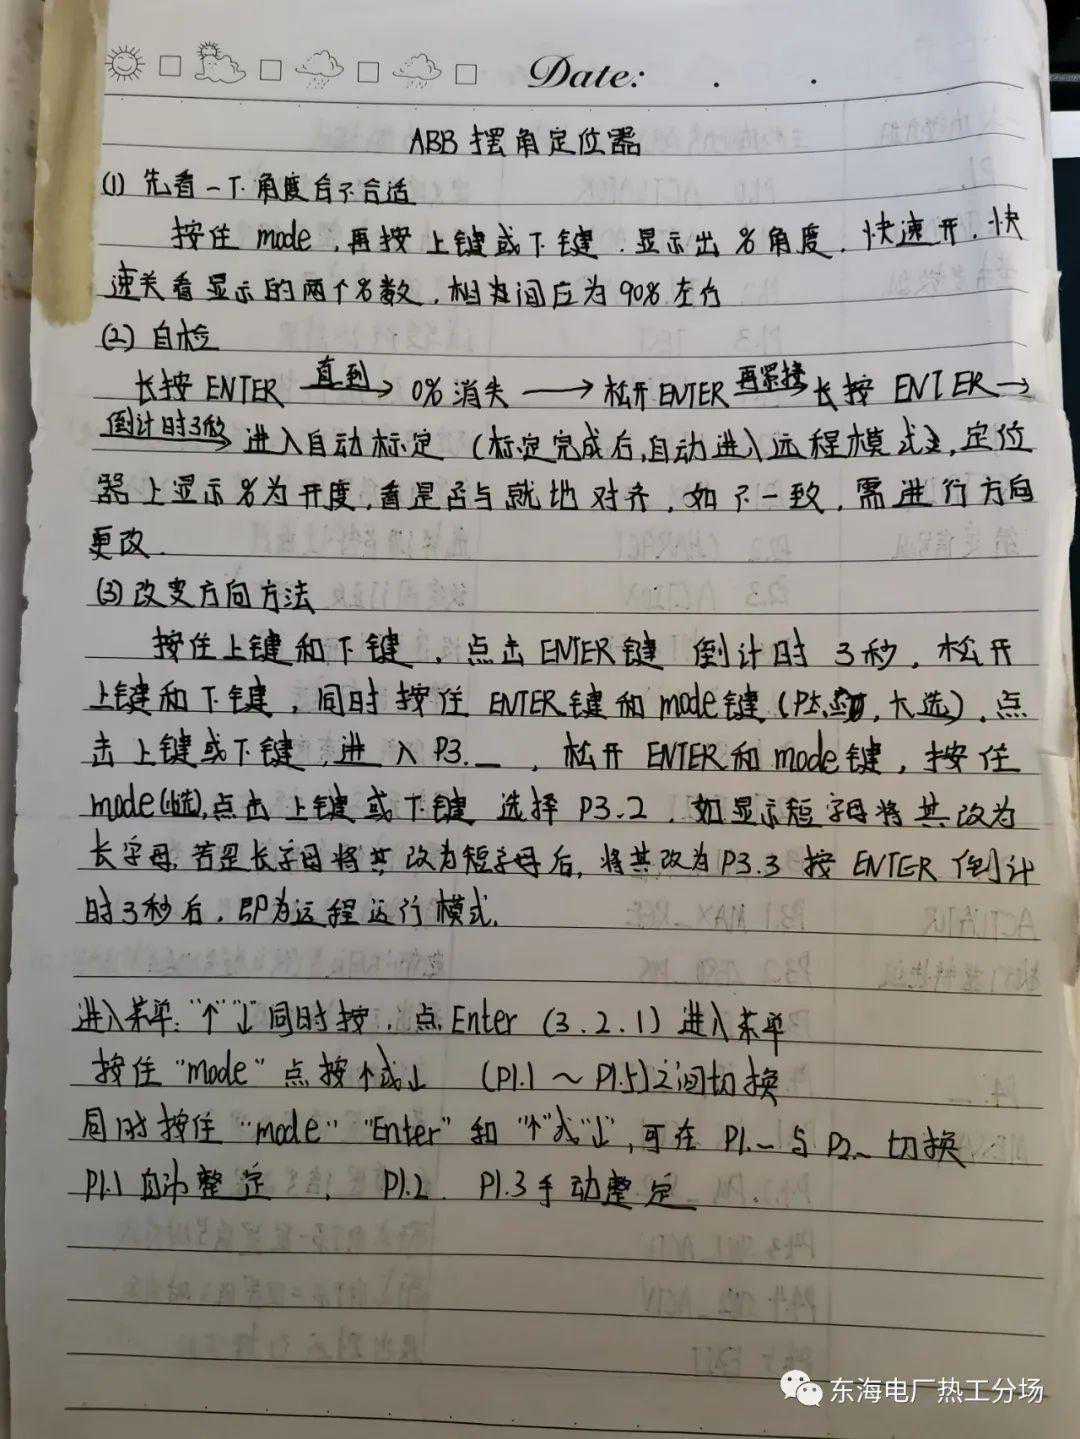 Date: . .
ABB 摆角定位器
(1) 先看一下角度合不合适
按住 mode，再按上键或下键，显示出%角度，快速开，快
速关看显示的两个%数，相差间应为90%左右
(2) 自检
长按 ENTER 直到→ 0%消失 → 松开ENTER 再紧接 长按 ENTER→
倒计时3秒→ 进入自动标定（标定完成后，自动进入远程模式），定位
器上显示%为开度，看是否与就地对齐，如不一致，需进行方向
更改.
(3) 改变方向方法
按住上键和下键，点击ENTER键 倒计时 3秒，松开
上键和下键，同时按住 ENTER键和mode键（大选），点
击上键或下键，进入P3._，松开 ENTER和mode键，按住
mode(小选)，点击上键或下键 选择 P3.2，如显示短字母将其改为
长字母，若是长字母将其改为短字母后，将其改为P3.3 按 ENTER 倒计
时3秒后，即为远程运行模式.
进入菜单："↑""↓"同时按，点Enter（3.2.1）进入菜单
按住"mode"点按↑或↓ （P1.1～P1.5）之间切换
同时按住"mode" "Enter"和"↑"或"↓"，可在 P1._ 与 P2._ 切换
P1.1 自动整定，P1.2、P1.3手动整定
东海电厂热工分场